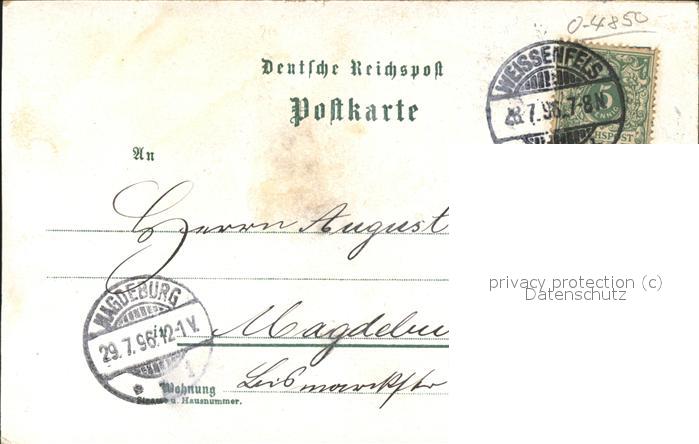 0-4850
Deutsche Reichspost
Postkarte
WEISSENFELS
28.7.96.7-8N.
5
CHSPOST
An
Herrn August
privacy protection (c)
Datenschutz
MAGDEBURG
29.7.96.12-1V.
1
in Magdebu
Bismarckstr
Wohnung
Strasse u. Hausnummer.